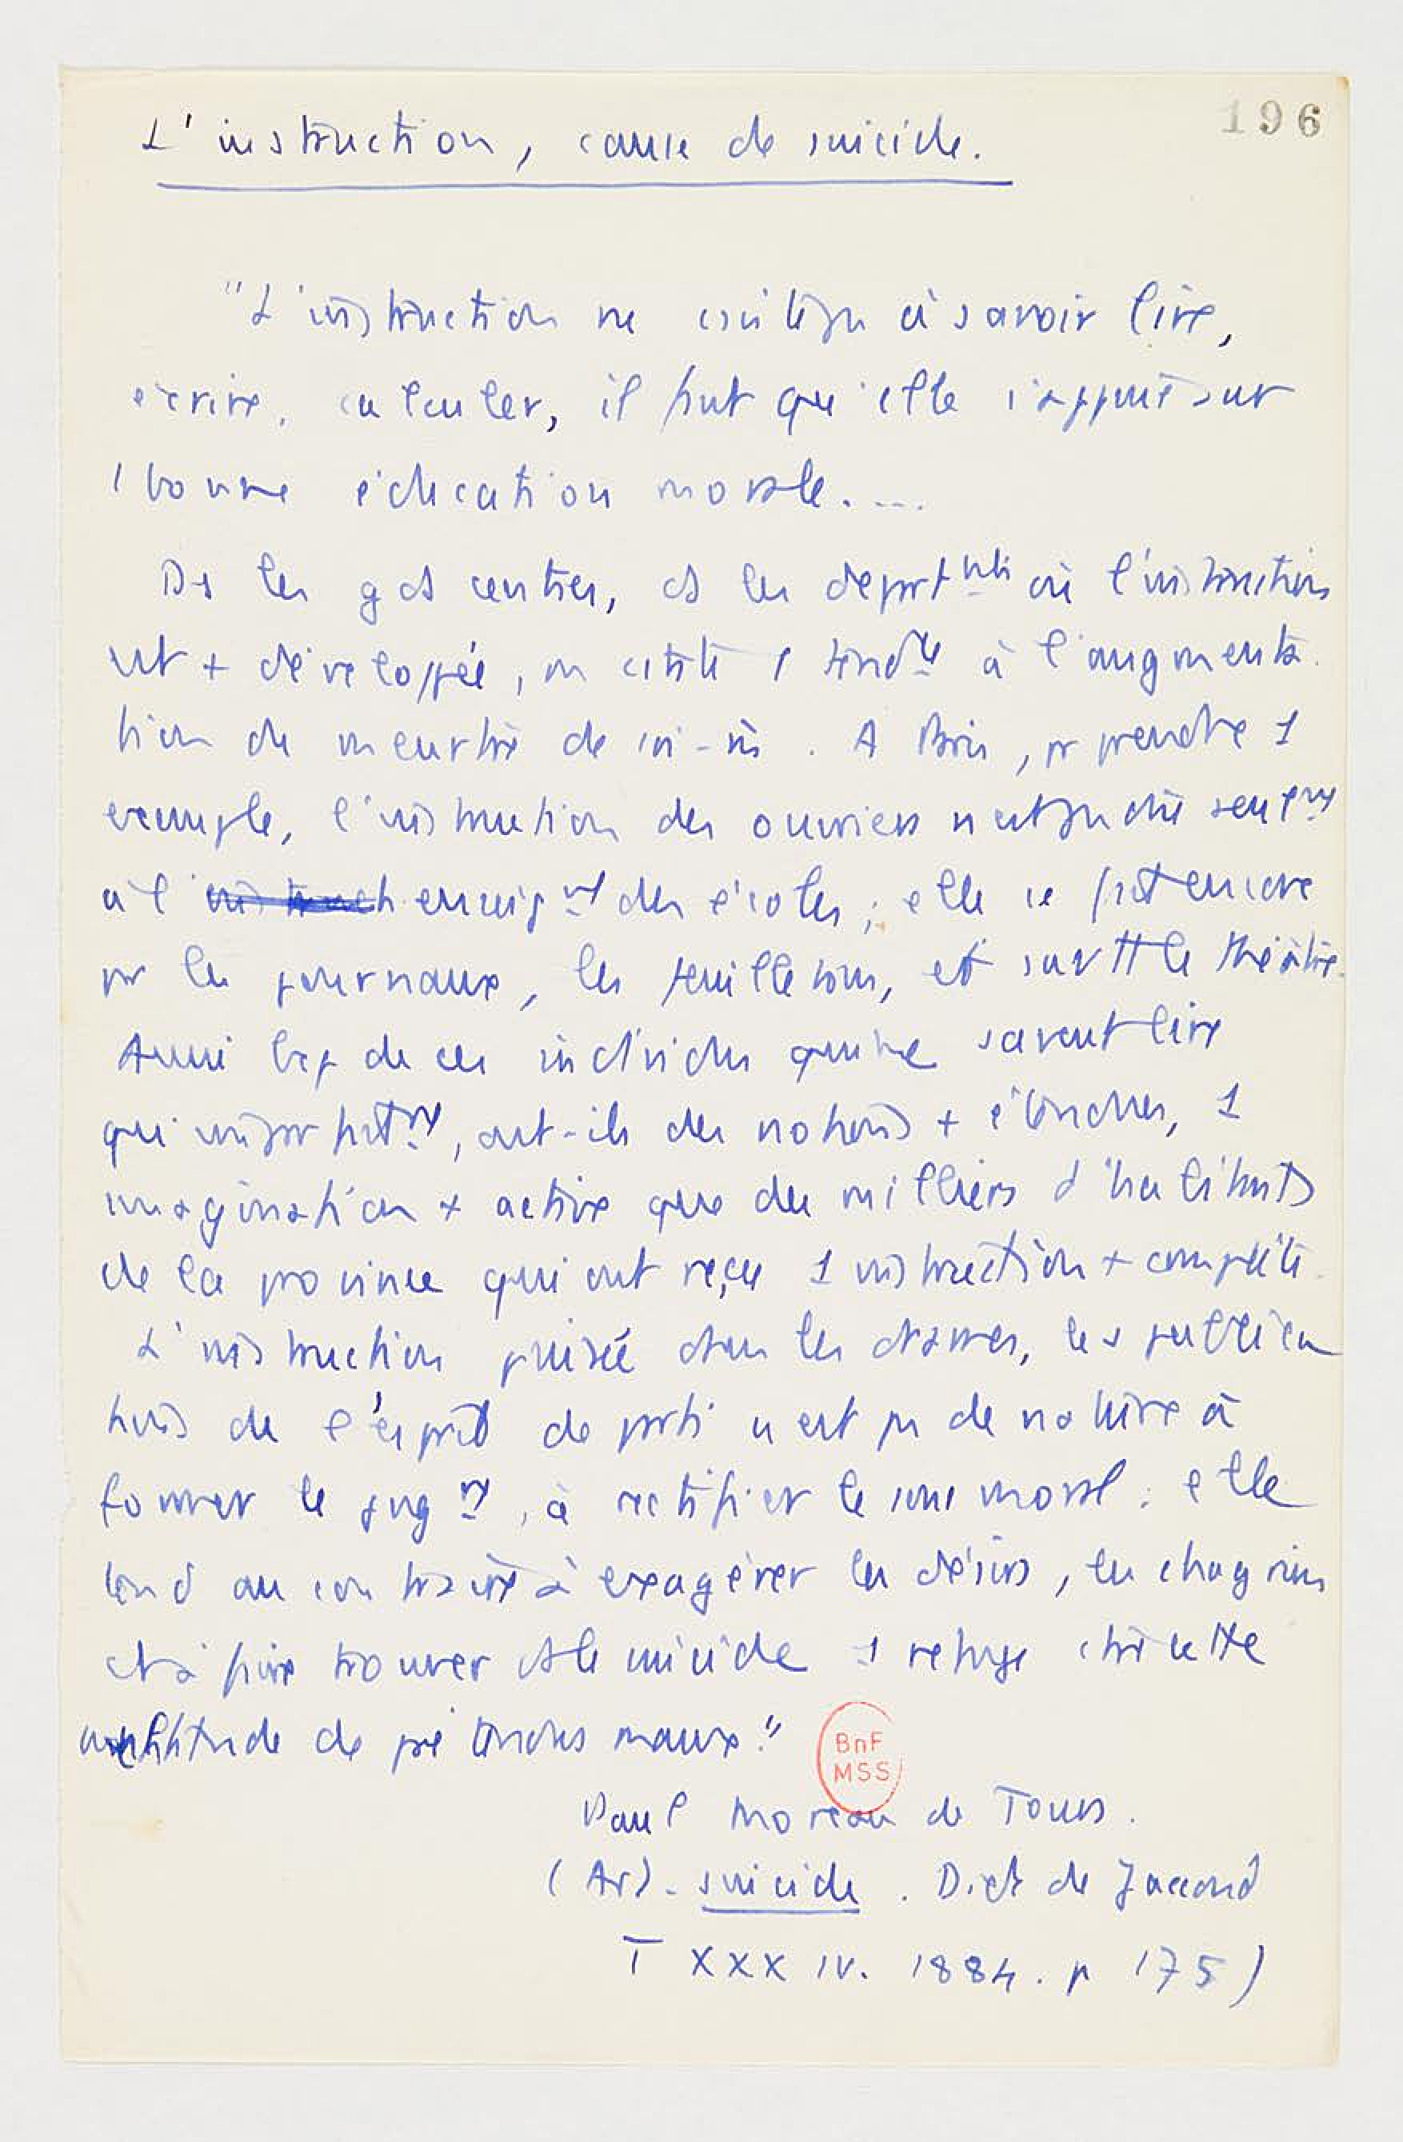 196
L'instruction, cause de suicide.
"L'instruction ne csiste pas à savoir lire,
écrire, calculer, il faut qu'elle s'appuie sur
1 bonne éducation morale. ...
Ds les gds centres, ds les départnts où l'instruction
est + développée, on cstate 1 tendce à l'augmenta-
tion du meurtre de soi-m. A Paris, pr prendre 1
exemple, l'instruction des ouvriers n'est pas due seulnt
à l' enseignt des écoles ; elle se fait encore
par les journaux, les feuilletons, et surtt le théâtre.
Aussi bcp de ces individus qui ne savent lire
qu'imparfaitnt, ont-ils des notions + étendues, 1
imagination + active que des milliers d'habitants
de la province qui ont reçu 1 instruction + complète.
L'instruction puisée dans les drames, les publica
tions de l'esprit de parti n'est pas de nature à
former le jugnt, à rectifier le sens moral ; elle
tend au contraire à exagérer les désirs, les chagrins
et à faire trouver ds le suicide 1 refuge ctre cette
multitude de prétendus maux."
BnF
MSS
Paul Moreau de Tours.
(Art. suicide. Dict de Jaccoud
T XXXIV. 1884. p 175)